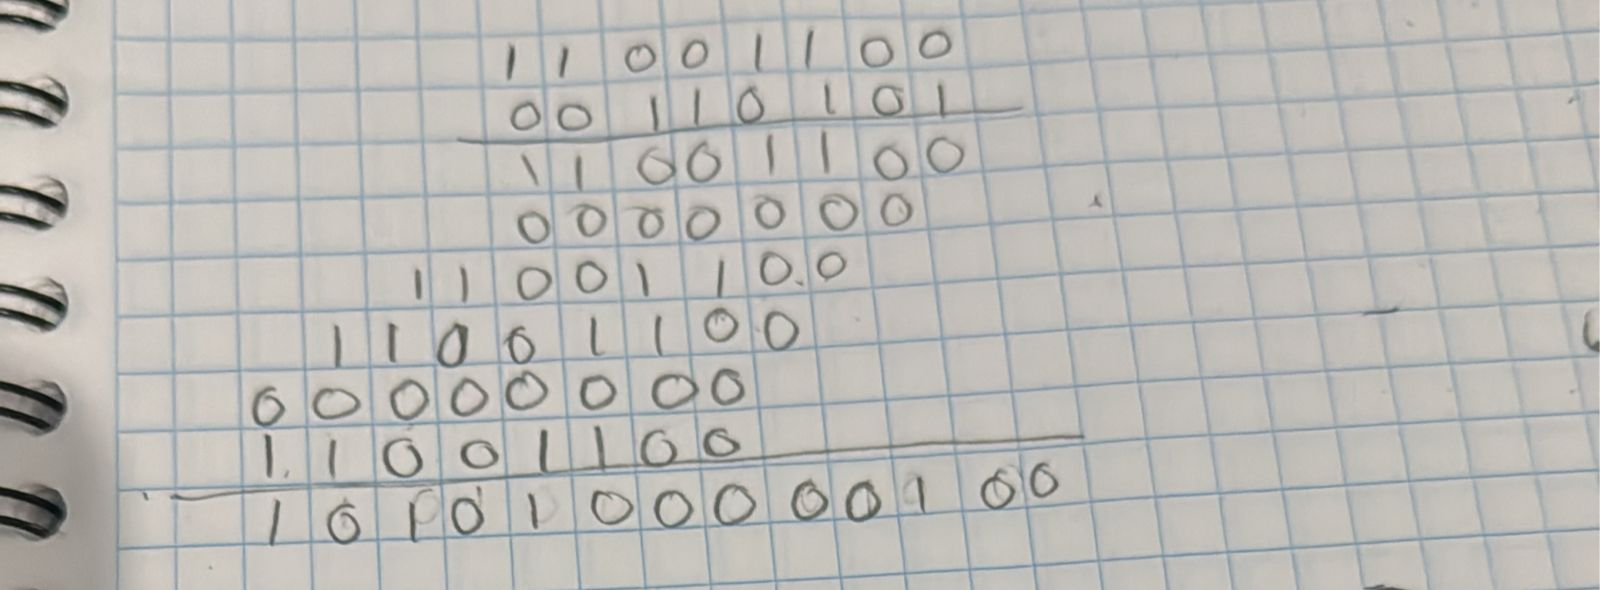 1 1 0 0 1 1 0 0
0 0 1 1 0 1 0 1
1 1 0 0 1 1 0 0
0 0 0 0 0 0 0
1 1 0 0 1 1 0.0
1 1 0 0 1 1 0 0
0 0 0 0 0 0 0 0
1. 1 0 0 1 1 0 0
1 0 1 0 1 0 0 0 0 0 1 0 0